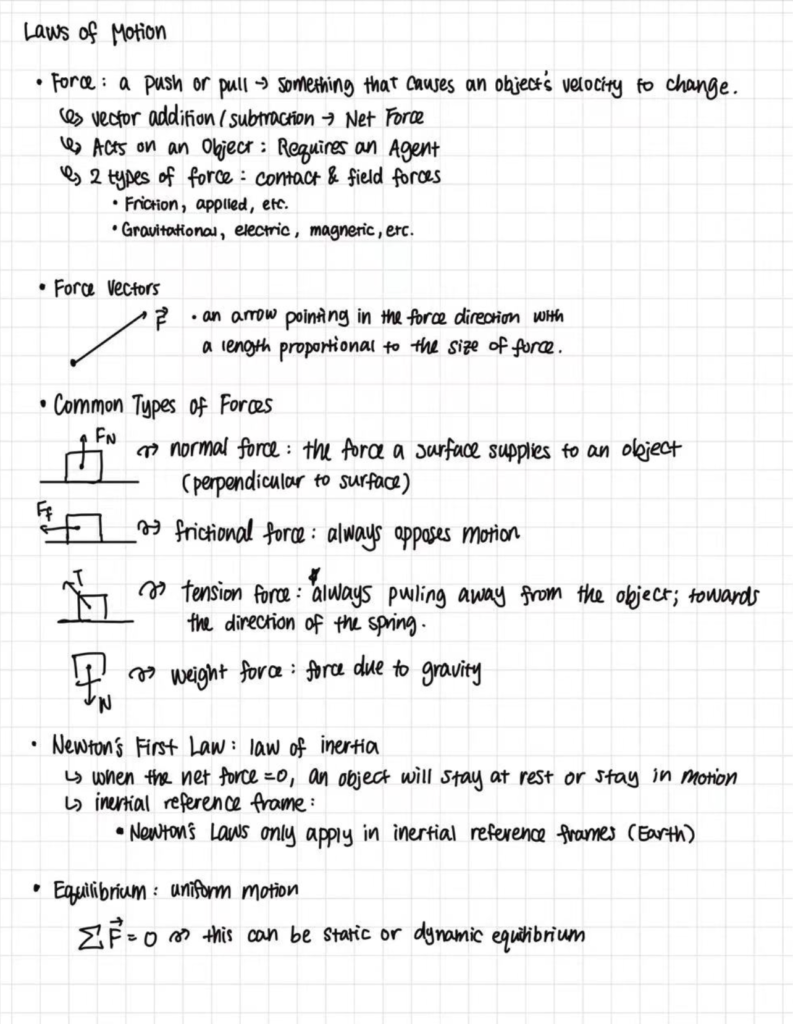 Laws of Motion
• Force: a push or pull → something that causes an object's velocity to change.
↳ vector addition/subtraction → Net Force
↳ Acts on an Object: Requires an Agent
↳ 2 types of force: contact & field forces
• Friction, applied, etc.
• Gravitational, electric, magnetic, etc.
• Force Vectors
F⃗ • an arrow pointing in the force direction with
a length proportional to the size of force.
• Common Types of Forces
FN → normal force: the force a surface supplies to an object
(perpendicular to surface)
Ff → frictional force: always opposes motion
T → tension force: always pulling away from the object; towards
the direction of the spring.
→ weight force: force due to gravity
N
• Newton's First Law: law of inertia
↳ when the net force =0, an object will stay at rest or stay in motion
↳ inertial reference frame:
• Newton's Laws only apply in inertial reference frames (Earth)
• Equilibrium: uniform motion
∑F⃗ = 0 → this can be static or dynamic equilibrium